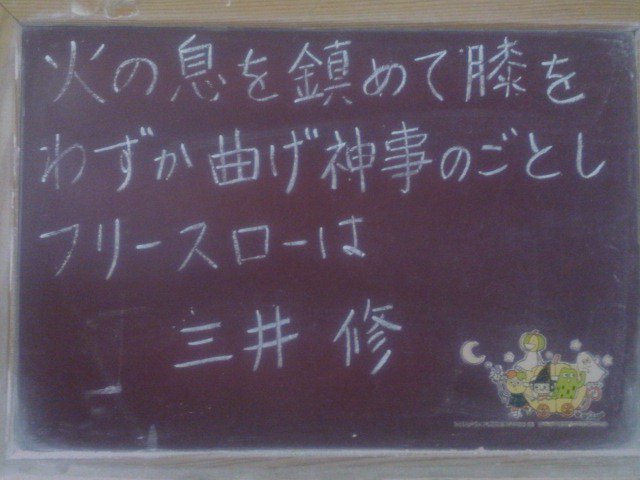 火の息を鎮めて膝を
わずか曲げ神事のごとし
フリースローは
三井 修